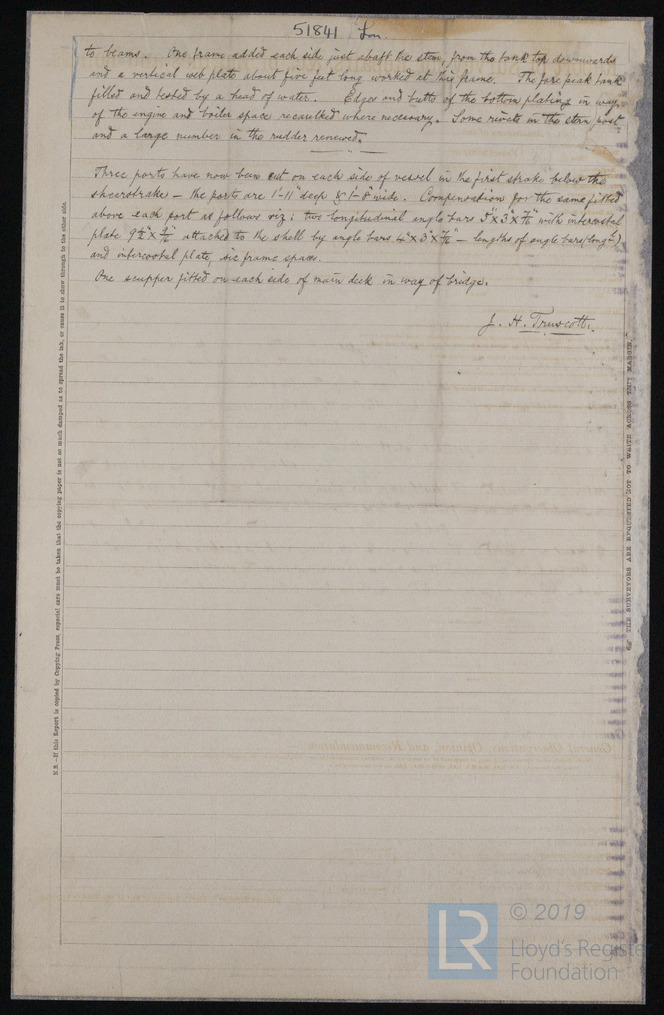 51841 Lon.
to beams. One frame added each side just abaft the stem, from the tank top downwards
and a vertical web plate about five feet long worked at this frame. The fore peak tank
filled and tested by a head of water. Edges and butts of the bottom plating in way
of the engine and boiler space recaulked where necessary. Some rivets in the stern post
and a large number in the rudder renewed.
Three ports have now been cut on each side of vessel in the first strake below the
sheerstrake - the ports are 1'-11" deep & 1'-8" wide. Compensation for the same fitted
above each port as follows viz: two longitudinal angle bars with intercostal
plate attached to the shell by angle bars - lengths of angle bars (longl)
and intercostal plate, six frame spaces.
One scupper fitted on each side of main deck in way of bridge.
J. H. Truscott.
N.B.—If this Report is copied by Copying Press, especial care must be taken that the copying paper is not so much damped as to spread the ink, or cause it to show through to the other side.
THE SURVEYORS ARE REQUESTED NOT TO WRITE ACROSS THIS MARGIN.
General Observations, Opinion, and Recommendation
LR
© 2019
Lloyd's Register
Foundation